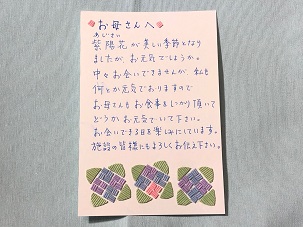 お母さんへ
あじさい
紫陽花が美しい季節となり
ましたが、お元気でしょうか。
中々お会いできませんが、私も
何とか元気でおりますので
お母さんもお食事しっかり頂いて
どうかお元気でいて下さい。
お会いできる日を楽しみにしています。
施設の皆様にもよろしくお伝え下さい。